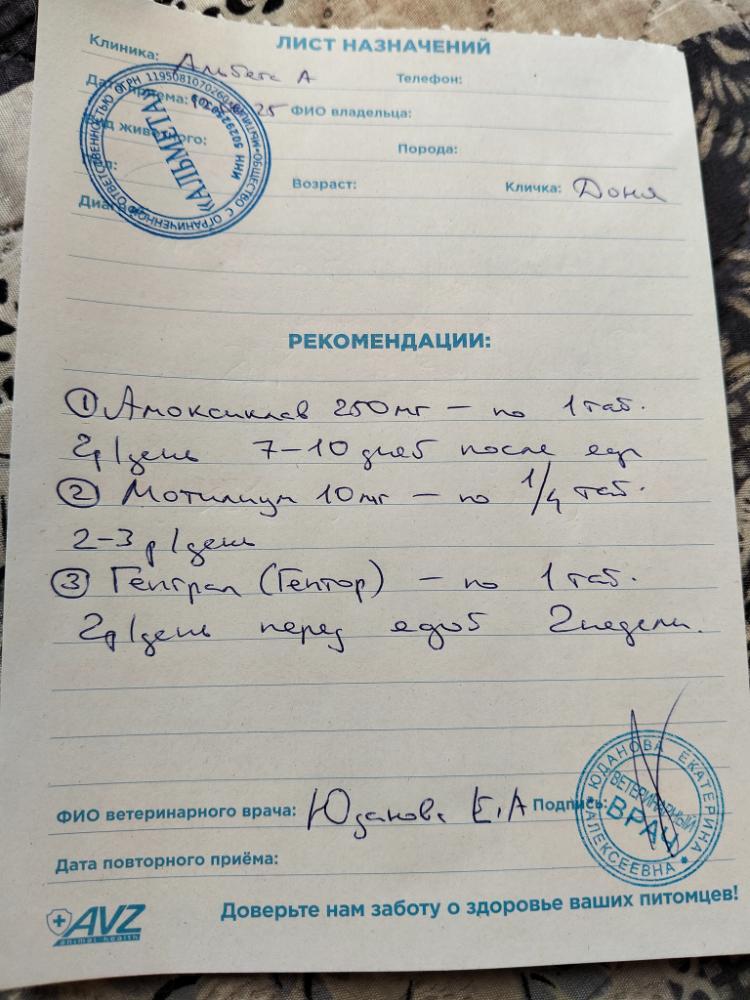 ЛИСТ НАЗНАЧЕНИЙ
Клиника: Альвета А Телефон:
приема: 25 ФИО владельца:
Порода:
Возраст: Кличка: Доня
ОБЩЕСТВО С ОГРАНИЧЕННОЙ ОТВЕТСТВЕННОСТЬЮ ОГРН
«АЛЬМЕТА»
РЕКОМЕНДАЦИИ:
① Амоксиклав 250мг – по 1 таб.
2р/день 7–10 дней после еды
② Мотилиум 10мг – по 1/4 таб.
2–3 р/день
③ Гептрал (Гептор) – по 1 таб.
2р/день перед едой 2 недели.
ФИО ветеринарного врача: Юданова Е.А Подпись:
ЮДАНОВА ЕКАТЕРИНА АЛЕКСЕЕВНА
ВЕТЕРИНАРНЫЙ
ВРАЧ
Дата повторного приёма:
AVZ
animal health
Доверьте нам заботу о здоровье ваших питомцев!